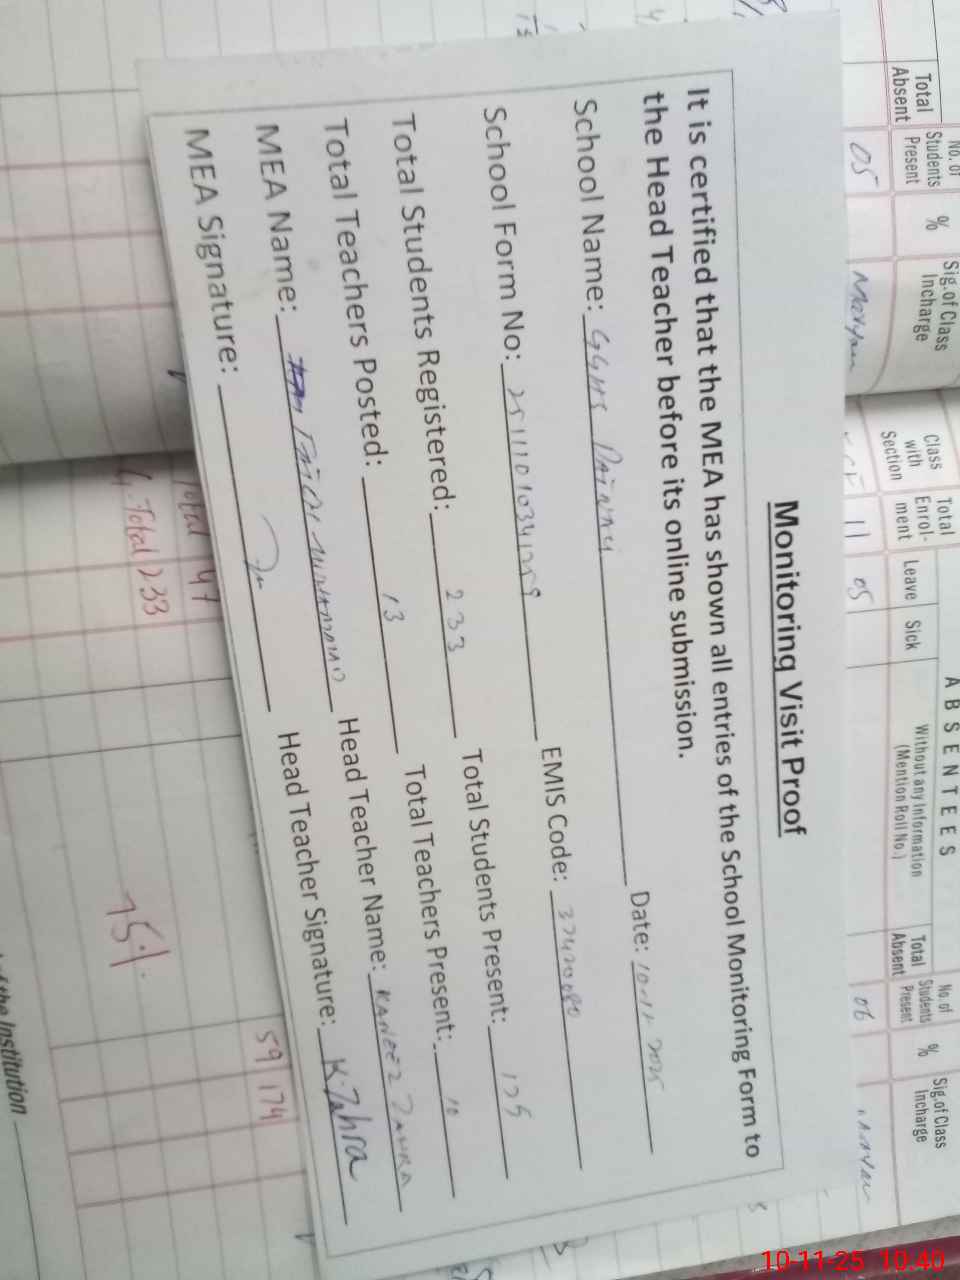 Monitoring Visit Proof
It is certified that the MEA has shown all entries of the School Monitoring Form to
the Head Teacher before its online submission.
School Name: GGHS Date: 10-11-2025
School Form No: EMIS Code:
Total Students Registered: 233 Total Students Present:
Total Teachers Posted: 13 Total Teachers Present: 10
MEA Name: MUHAMMAD Head Teacher Name: KANEEZ ZAHRA
MEA Signature: Head Teacher Signature: K.Zahra
Total Absent
No. of Students Present
%
Sig. of Class Incharge
05
Class with Section
Total Enrol-ment
Leave
Sick
ABSENTEES
Without any Information
(Mention Roll No.)
Total Absent
No. of Students Present
%
Sig. of Class Incharge
11 05 06
Total 47
G.Total 233
75%
59 174
of the Institution
10-11-25 10:40